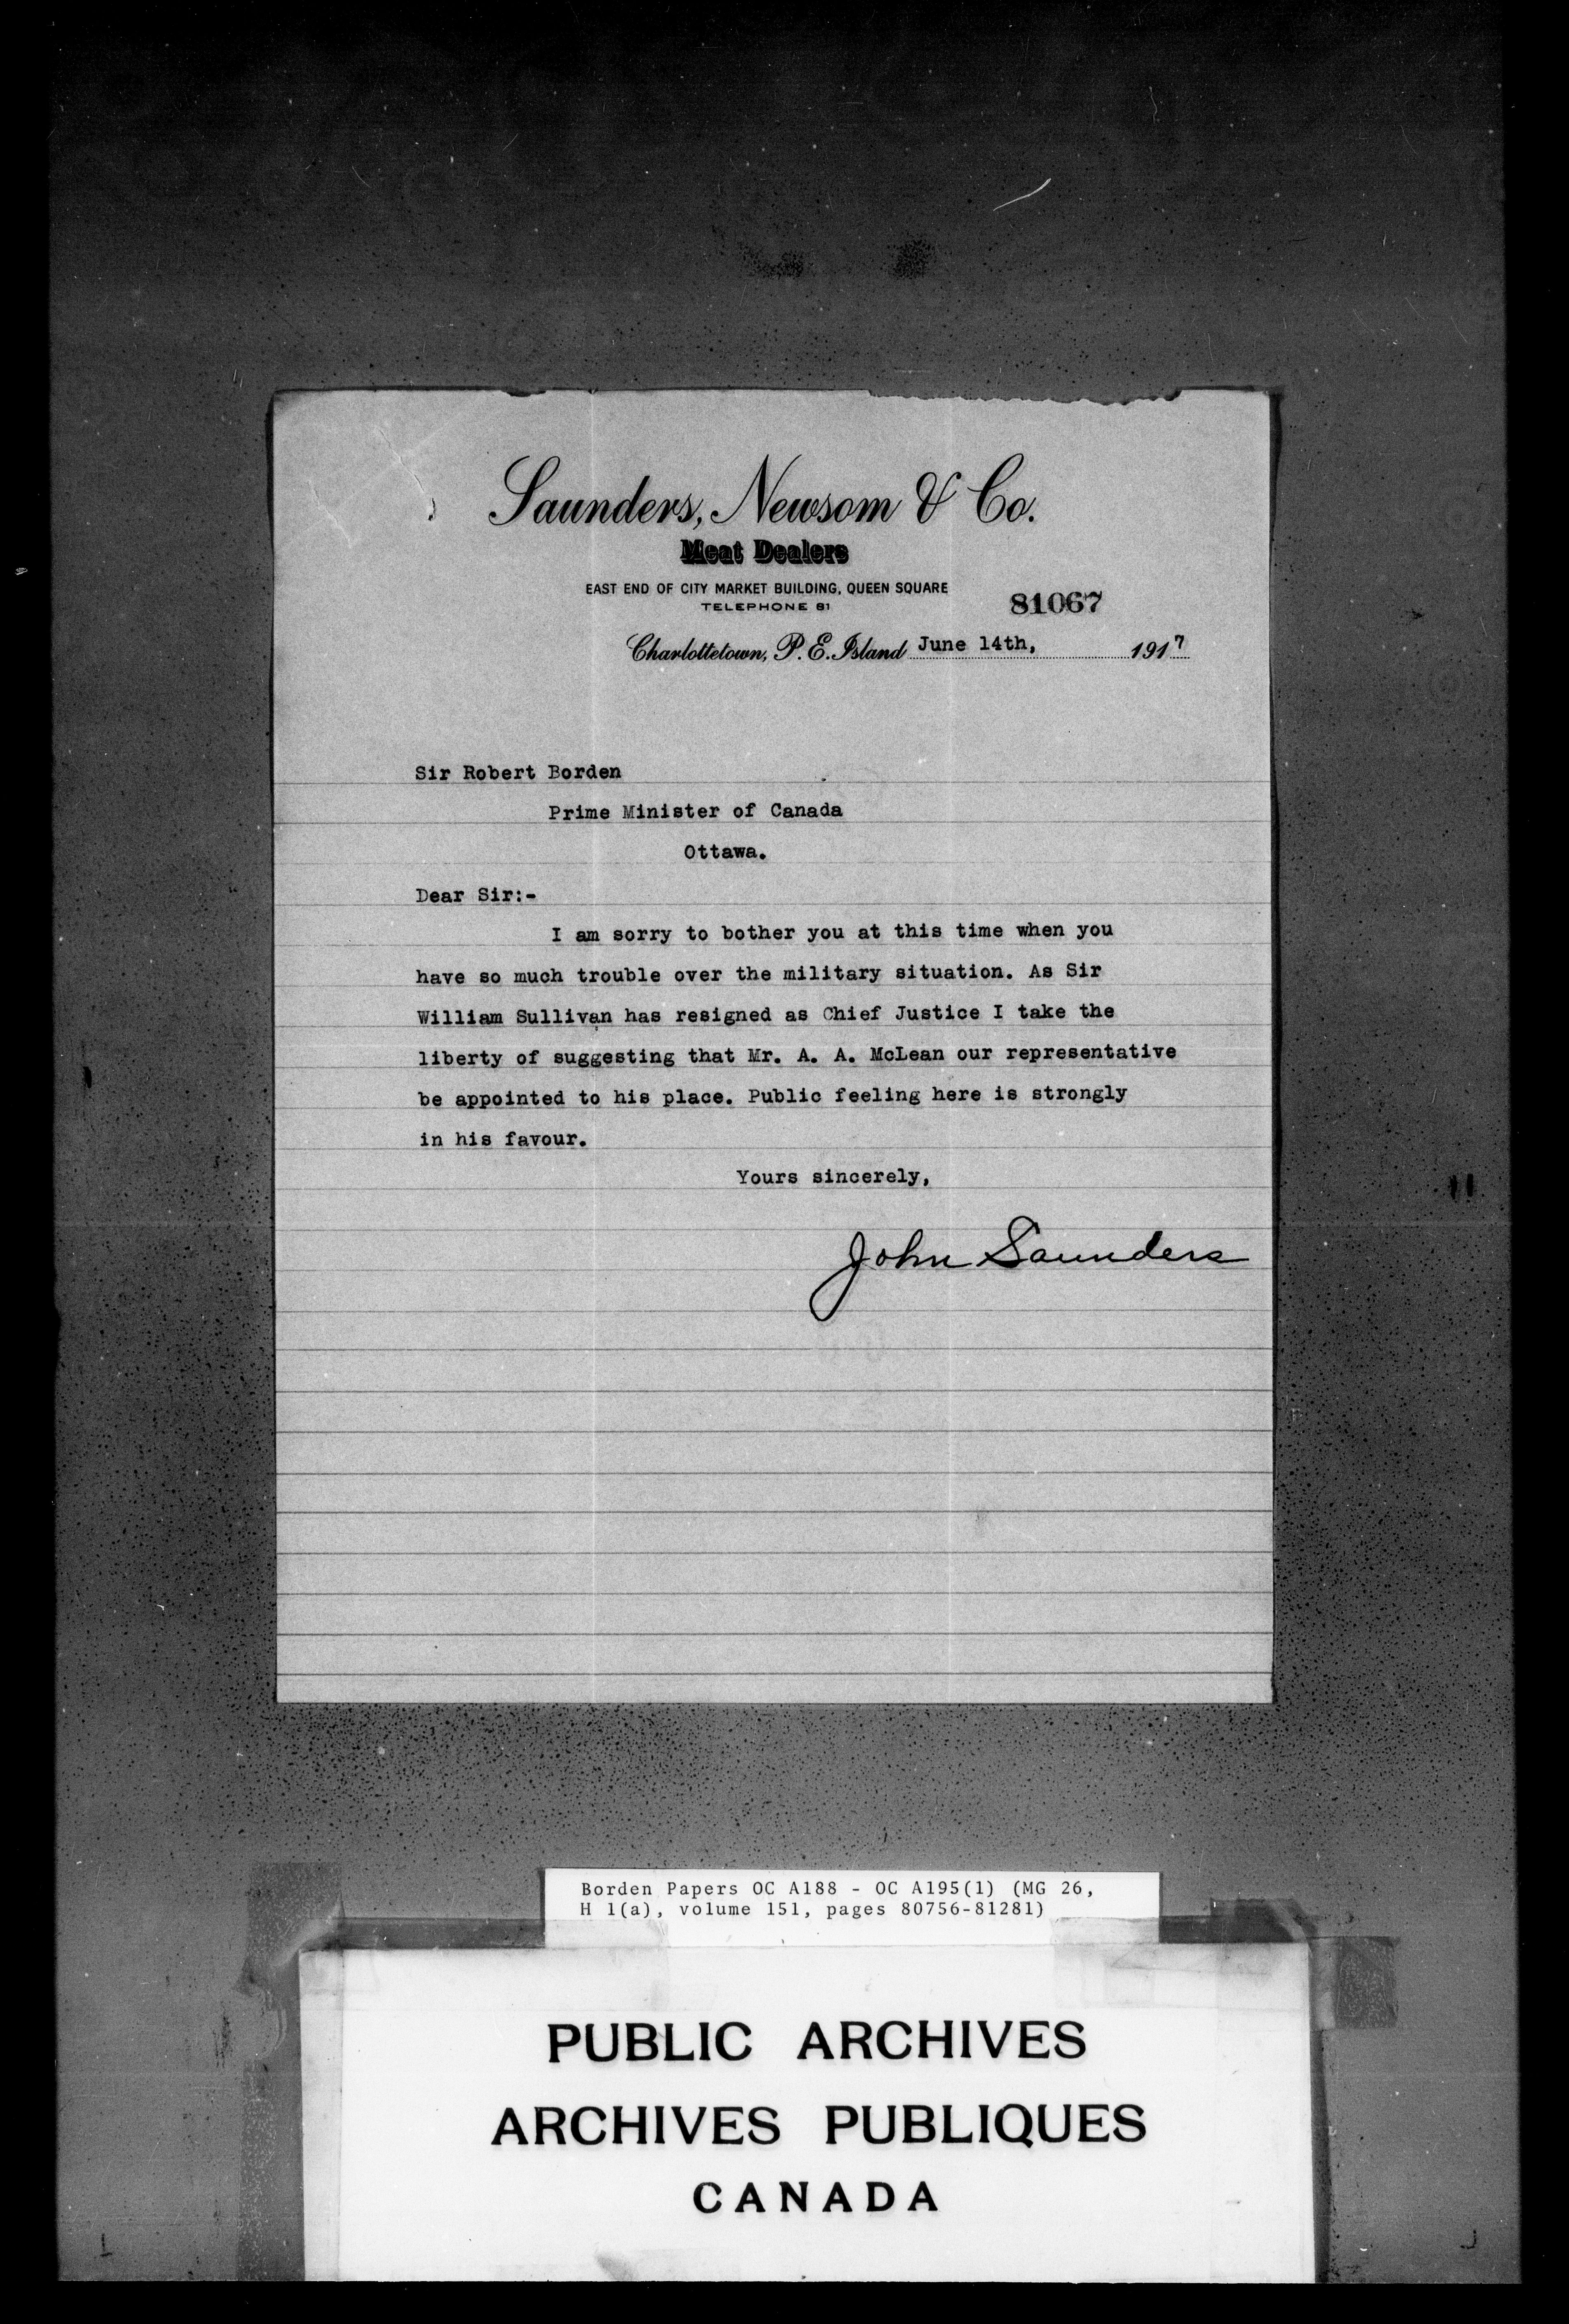 Saunders, Newsom & Co.
Meat Dealers
EAST END OF CITY MARKET BUILDING, QUEEN SQUARE
TELEPHONE 81
81067
Charlottetown, P. E. Island June 14th, 1917
Sir Robert Borden
Prime Minister of Canada
Ottawa.
Dear Sir:-
I am sorry to bother you at this time when you
have so much trouble over the military situation. As Sir
William Sullivan has resigned as Chief Justice I take the
liberty of suggesting that Mr. A. A. McLean our representative
be appointed to his place. Public feeling here is strongly
in his favour.
Yours sincerely,
John Saunders
Borden Papers OC A188 - OC A195(1) (MG 26,
H 1(a), volume 151, pages 80756-81281)
PUBLIC ARCHIVES
ARCHIVES PUBLIQUES
CANADA